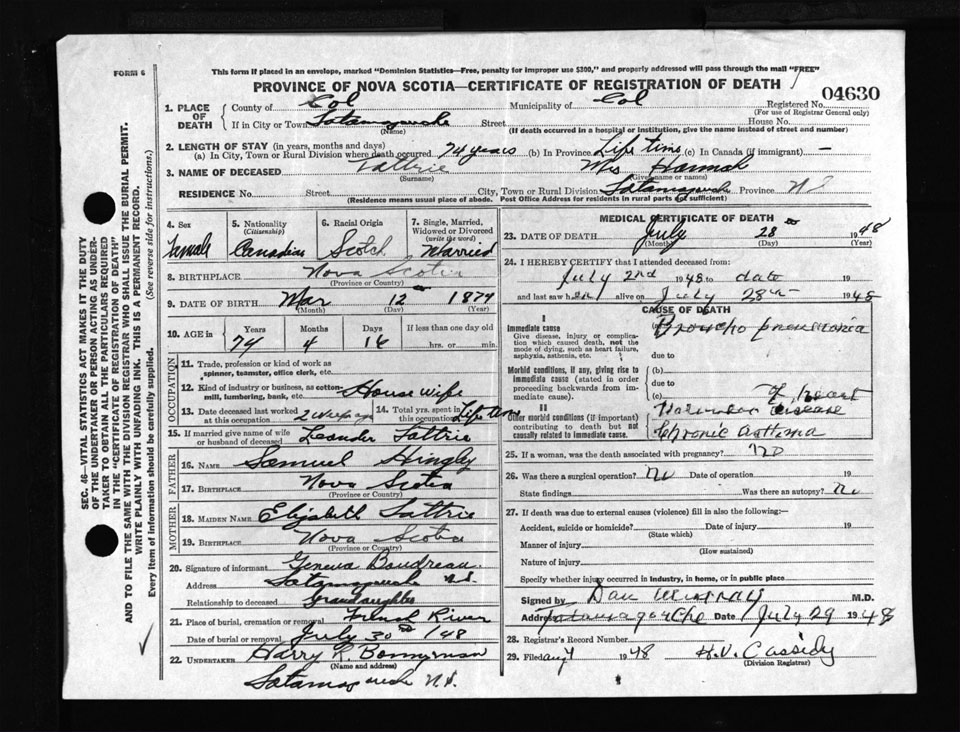 FORM 6
This form if placed in an envelope, marked "Dominion Statistics—Free, penalty for improper use $300," and properly addressed will pass through the mail "FREE"
PROVINCE OF NOVA SCOTIA—CERTIFICATE OF REGISTRATION OF DEATH
04630
1. PLACE OF DEATH
County of Col Municipality of Col Registered No.
(For use of Registrar General only)
If in City or Town Tatamagouche Street House No.
(Name) (If death occurred in a hospital or institution, give the name instead of street and number)
2. LENGTH OF STAY (in years, months and days)
(a) In City, Town or Rural Division where death occurred 74 years (b) In Province Life time (c) In Canada (if immigrant) —
3. NAME OF DECEASED Tattrie Mrs Hannah
(Surname) (Given name or names)
RESIDENCE No. Street City, Town or Rural Division Tatamagouche Province N S
(Residence means usual place of abode. Post Office Address for residents in rural parts not sufficient)
4. Sex Female
5. Nationality (Citizenship) Canadian
6. Racial Origin Scotch
7. Single, Married, Widowed or Divorced (write the word) Married
8. BIRTHPLACE Nova Scotia
(Province or Country)
9. DATE OF BIRTH Mar 12 1874
(Month) (Day) (Year)
10. AGE in Years Months Days If less than one day old
74 4 16 hrs. or min.
OCCUPATION
11. Trade, profession or kind of work as spinner, teamster, office clerk, etc.
12. Kind of industry or business, as cotton-mill, lumbering, bank, etc. House wife
13. Date deceased last worked at this occupation 2 weeks ago 14. Total yrs. spent in this occupation Life time
15. If married give name of wife or husband of deceased Leander Tattrie
FATHER
16. NAME Samuel Hingley
17. BIRTHPLACE Nova Scotia
(Province or Country)
MOTHER
18. MAIDEN NAME Elizabeth Tattrie
19. BIRTHPLACE Nova Scotia
(Province or Country)
20. Signature of informant Geneva Boudreau
Address Tatamagouche N.S.
Relationship to deceased Grandaughter
21. Place of burial, cremation or removal French River
Date of burial or removal July 30 /48
22. UNDERTAKER Harry L. Bonnyman
(Name and address)
Tatamagouche N.S.
MEDICAL CERTIFICATE OF DEATH
23. DATE OF DEATH July 28 1948
(Month) (Day) (Year)
24. I HEREBY CERTIFY that I attended deceased from:
July 2nd 1948 to date 19
and last saw her alive on July 28th 1948
CAUSE OF DEATH
I
Immediate cause (a) Broncho pneumonia
Give disease, injury or complication which caused death, not the mode of dying, such as heart failure, asphyxia, asthenia, etc.
due to
Morbid conditions, if any, giving rise to immediate cause (stated in order proceeding backwards from immediate cause).
(b)
due to
(c)
II
Other morbid conditions (if important) contributing to death but not causally related to immediate cause.
heart
disease
Chronic asthma
25. If a woman, was the death associated with pregnancy? NO
26. Was there a surgical operation? No Date of operation 19
State findings Was there an autopsy? No
27. If death was due to external causes (violence) fill in also the following:—
Accident, suicide or homicide? Date of injury 19
(State which)
Manner of injury
(How sustained)
Nature of injury
Specify whether injury occurred in industry, in home, or in public place
Signed by Dan Murray M.D.
Address Tatamagouche Date July 29 1948
28. Registrar's Record Number
29. Filed Aug 1948 H.V. Cassidy
(Division Registrar)
SEC. 46—VITAL STATISTICS ACT MAKES IT THE DUTY
OF THE UNDERTAKER OR PERSON ACTING AS UNDER-
TAKER TO OBTAIN ALL THE PARTICULARS REQUIRED
IN THE "CERTIFICATE OF REGISTRATION OF DEATH"
AND TO FILE THE SAME WITH THE DIVISION REGISTRAR WHO SHALL ISSUE THE BURIAL PERMIT.
WRITE PLAINLY WITH UNFADING INK. THIS IS A PERMANENT RECORD.
Every item of information should be carefully supplied. (See reverse side for instructions.)